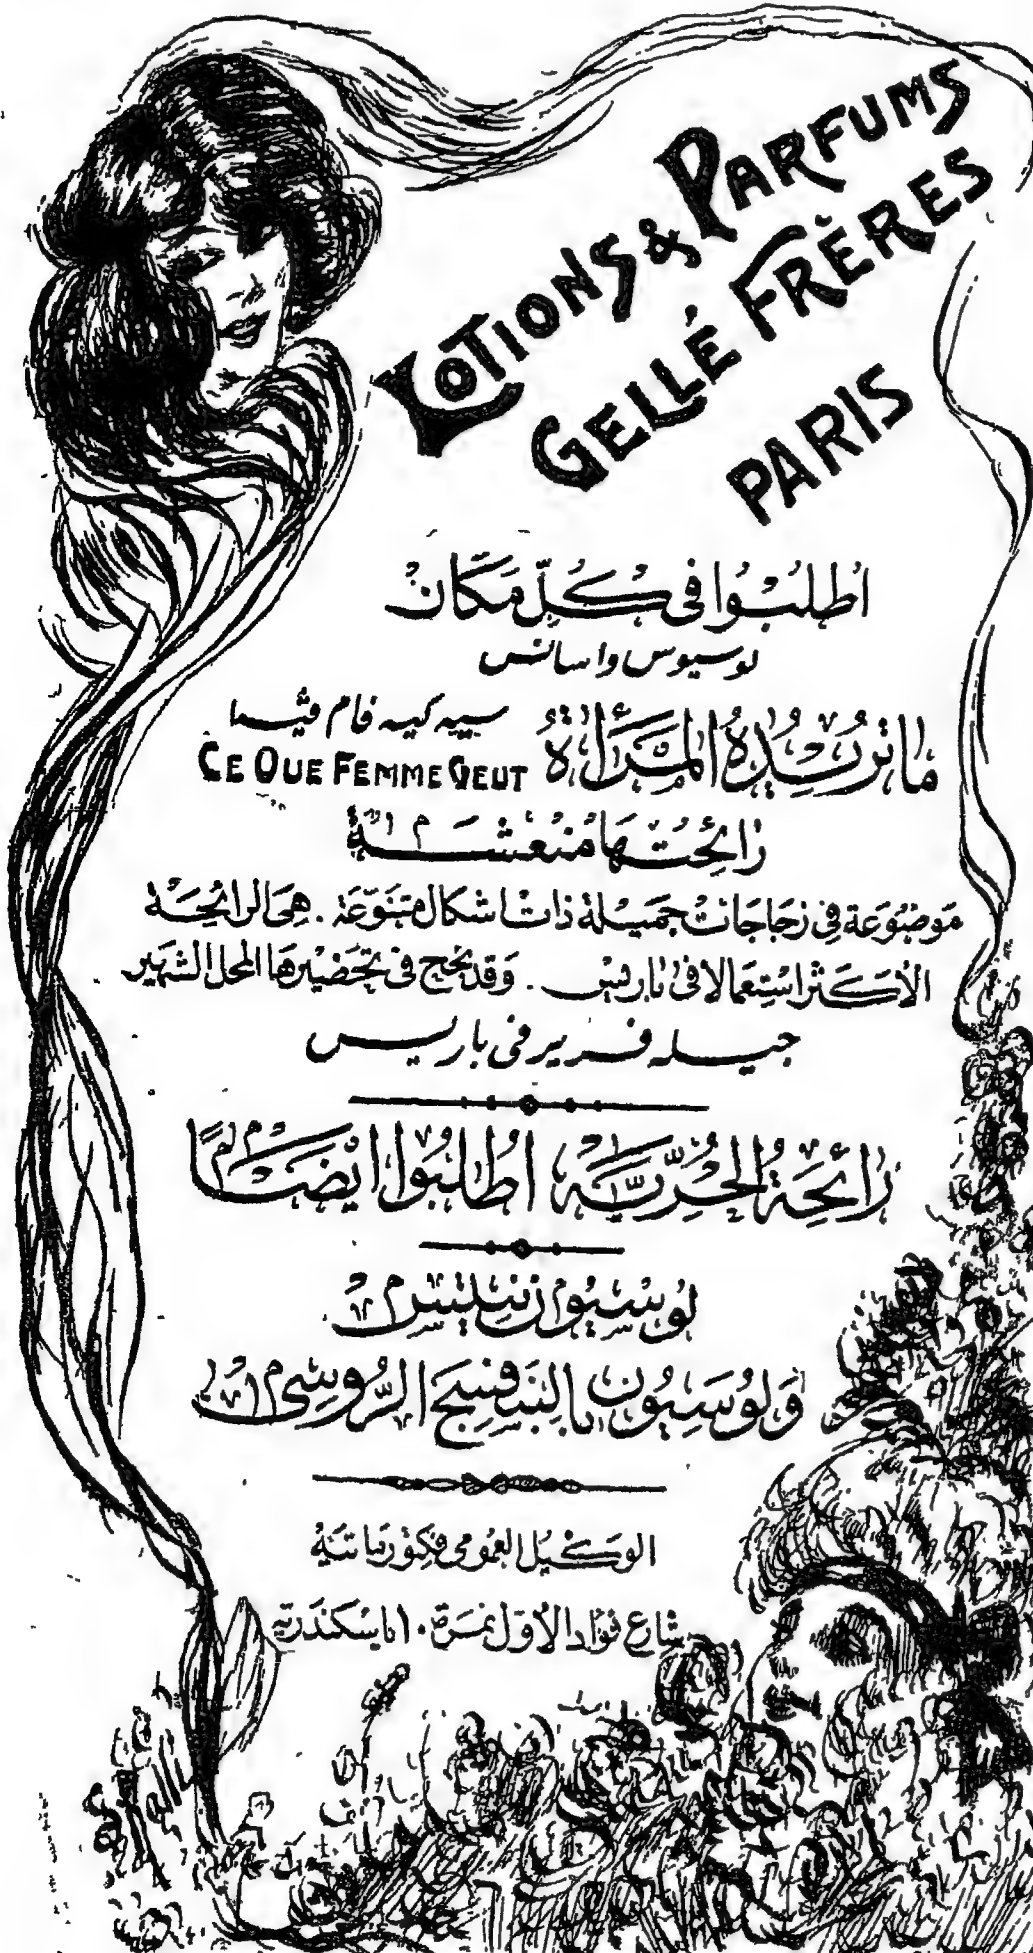 LOTIONS & PARFUMS
GELLÉ FRÈRES
PARIS
اطلبوا في كل مكان
لوسيون واسانس
ما تريده المرأة
سيه كيه فام فيه
CE QUE FEMME VEUT
رائحتها منعشة
موضوعة في زجاجات جميلة ذات اشكال متنوعة . هي الرائحة
الأكثر استعمالا في باريس . وقد نجح في تحضيرها المحل الشهير
جيله فرير في باريس
رائحة الحرية اطلبوا ايضا
لوسيون
ولوسيون بالبنفسج الروسي
الوكيل العمومي فكتور
شارع فؤاد الأول نمرة ١٠ باسكندرية